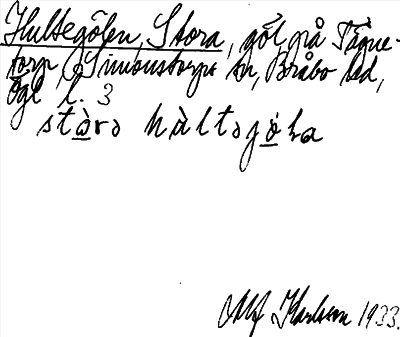 Hultegölen, Stora, göl på Tågne-
torp, Simonstorps sn, Bråbo hd,
Ögl l. 3
stàrə hàltəgøLa
Alf Karlsson 1933.